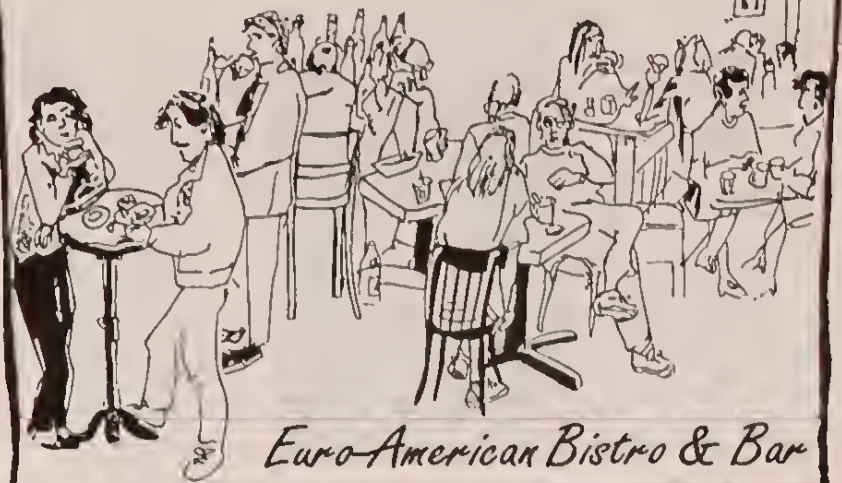 Euro-American Bistro & Bar